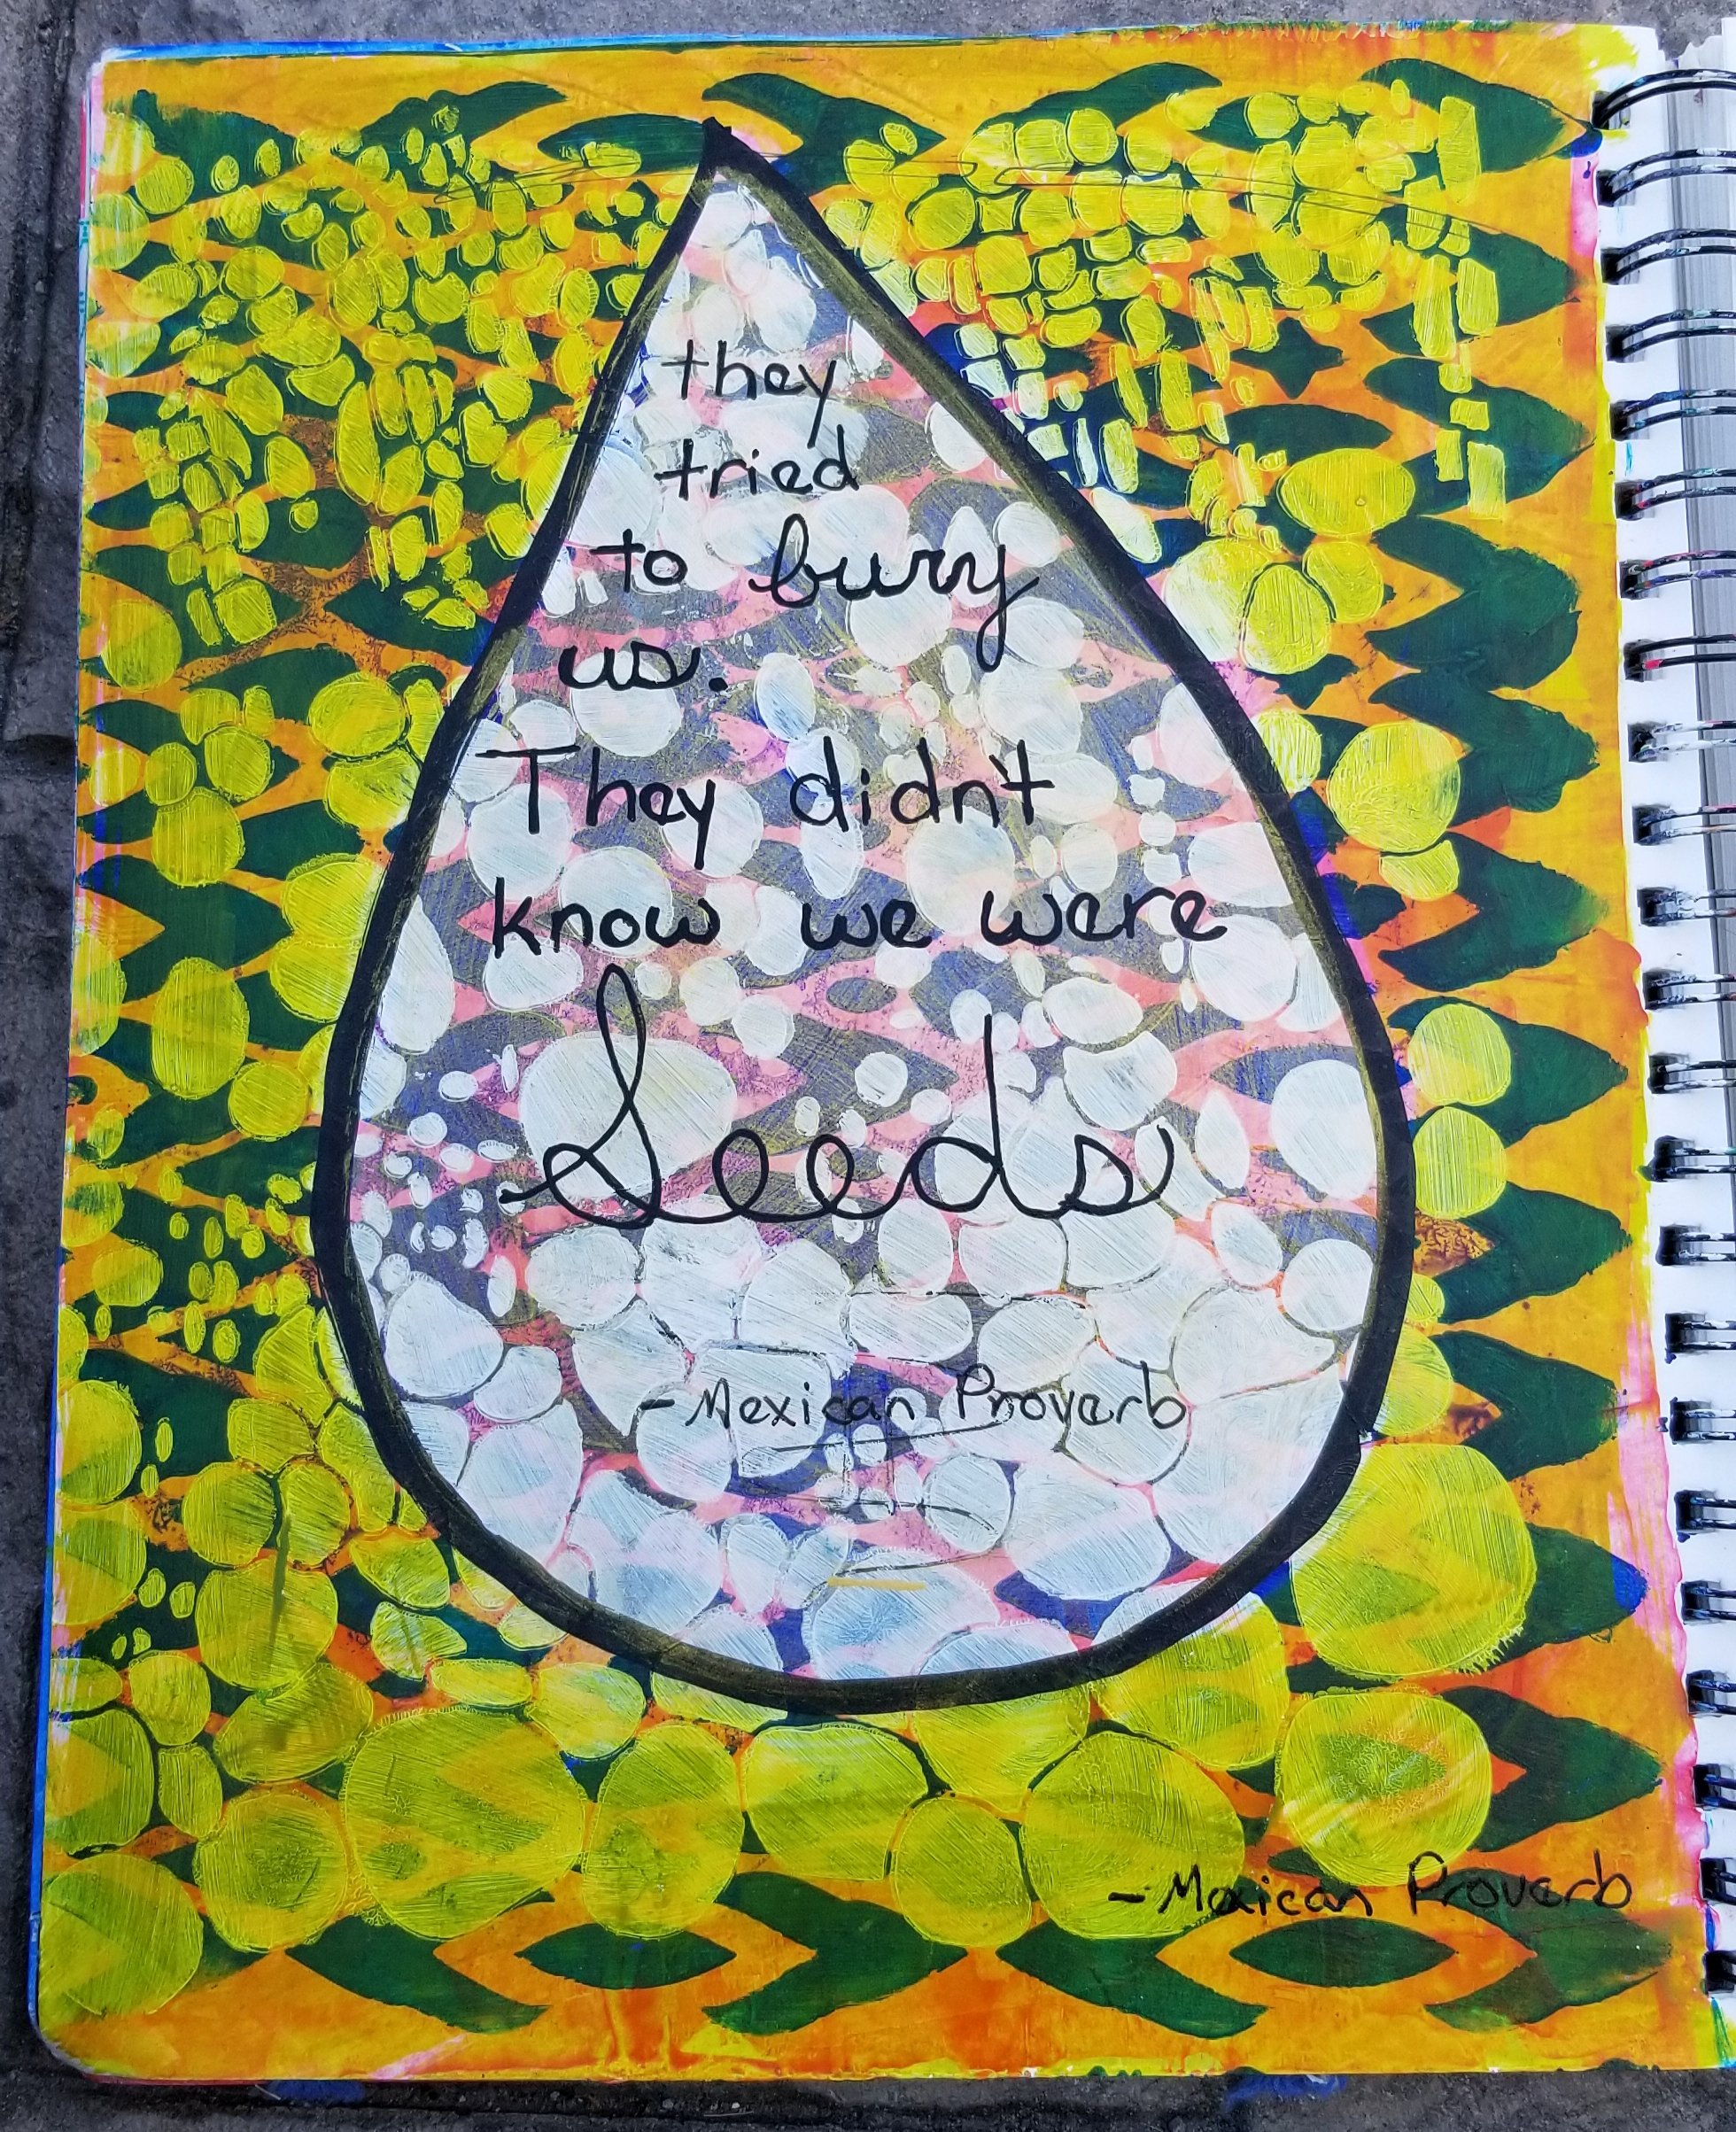 they
tried
to bury
us.
They didn't
know we were
Seeds
- Mexican Proverb
- Mexican Proverb